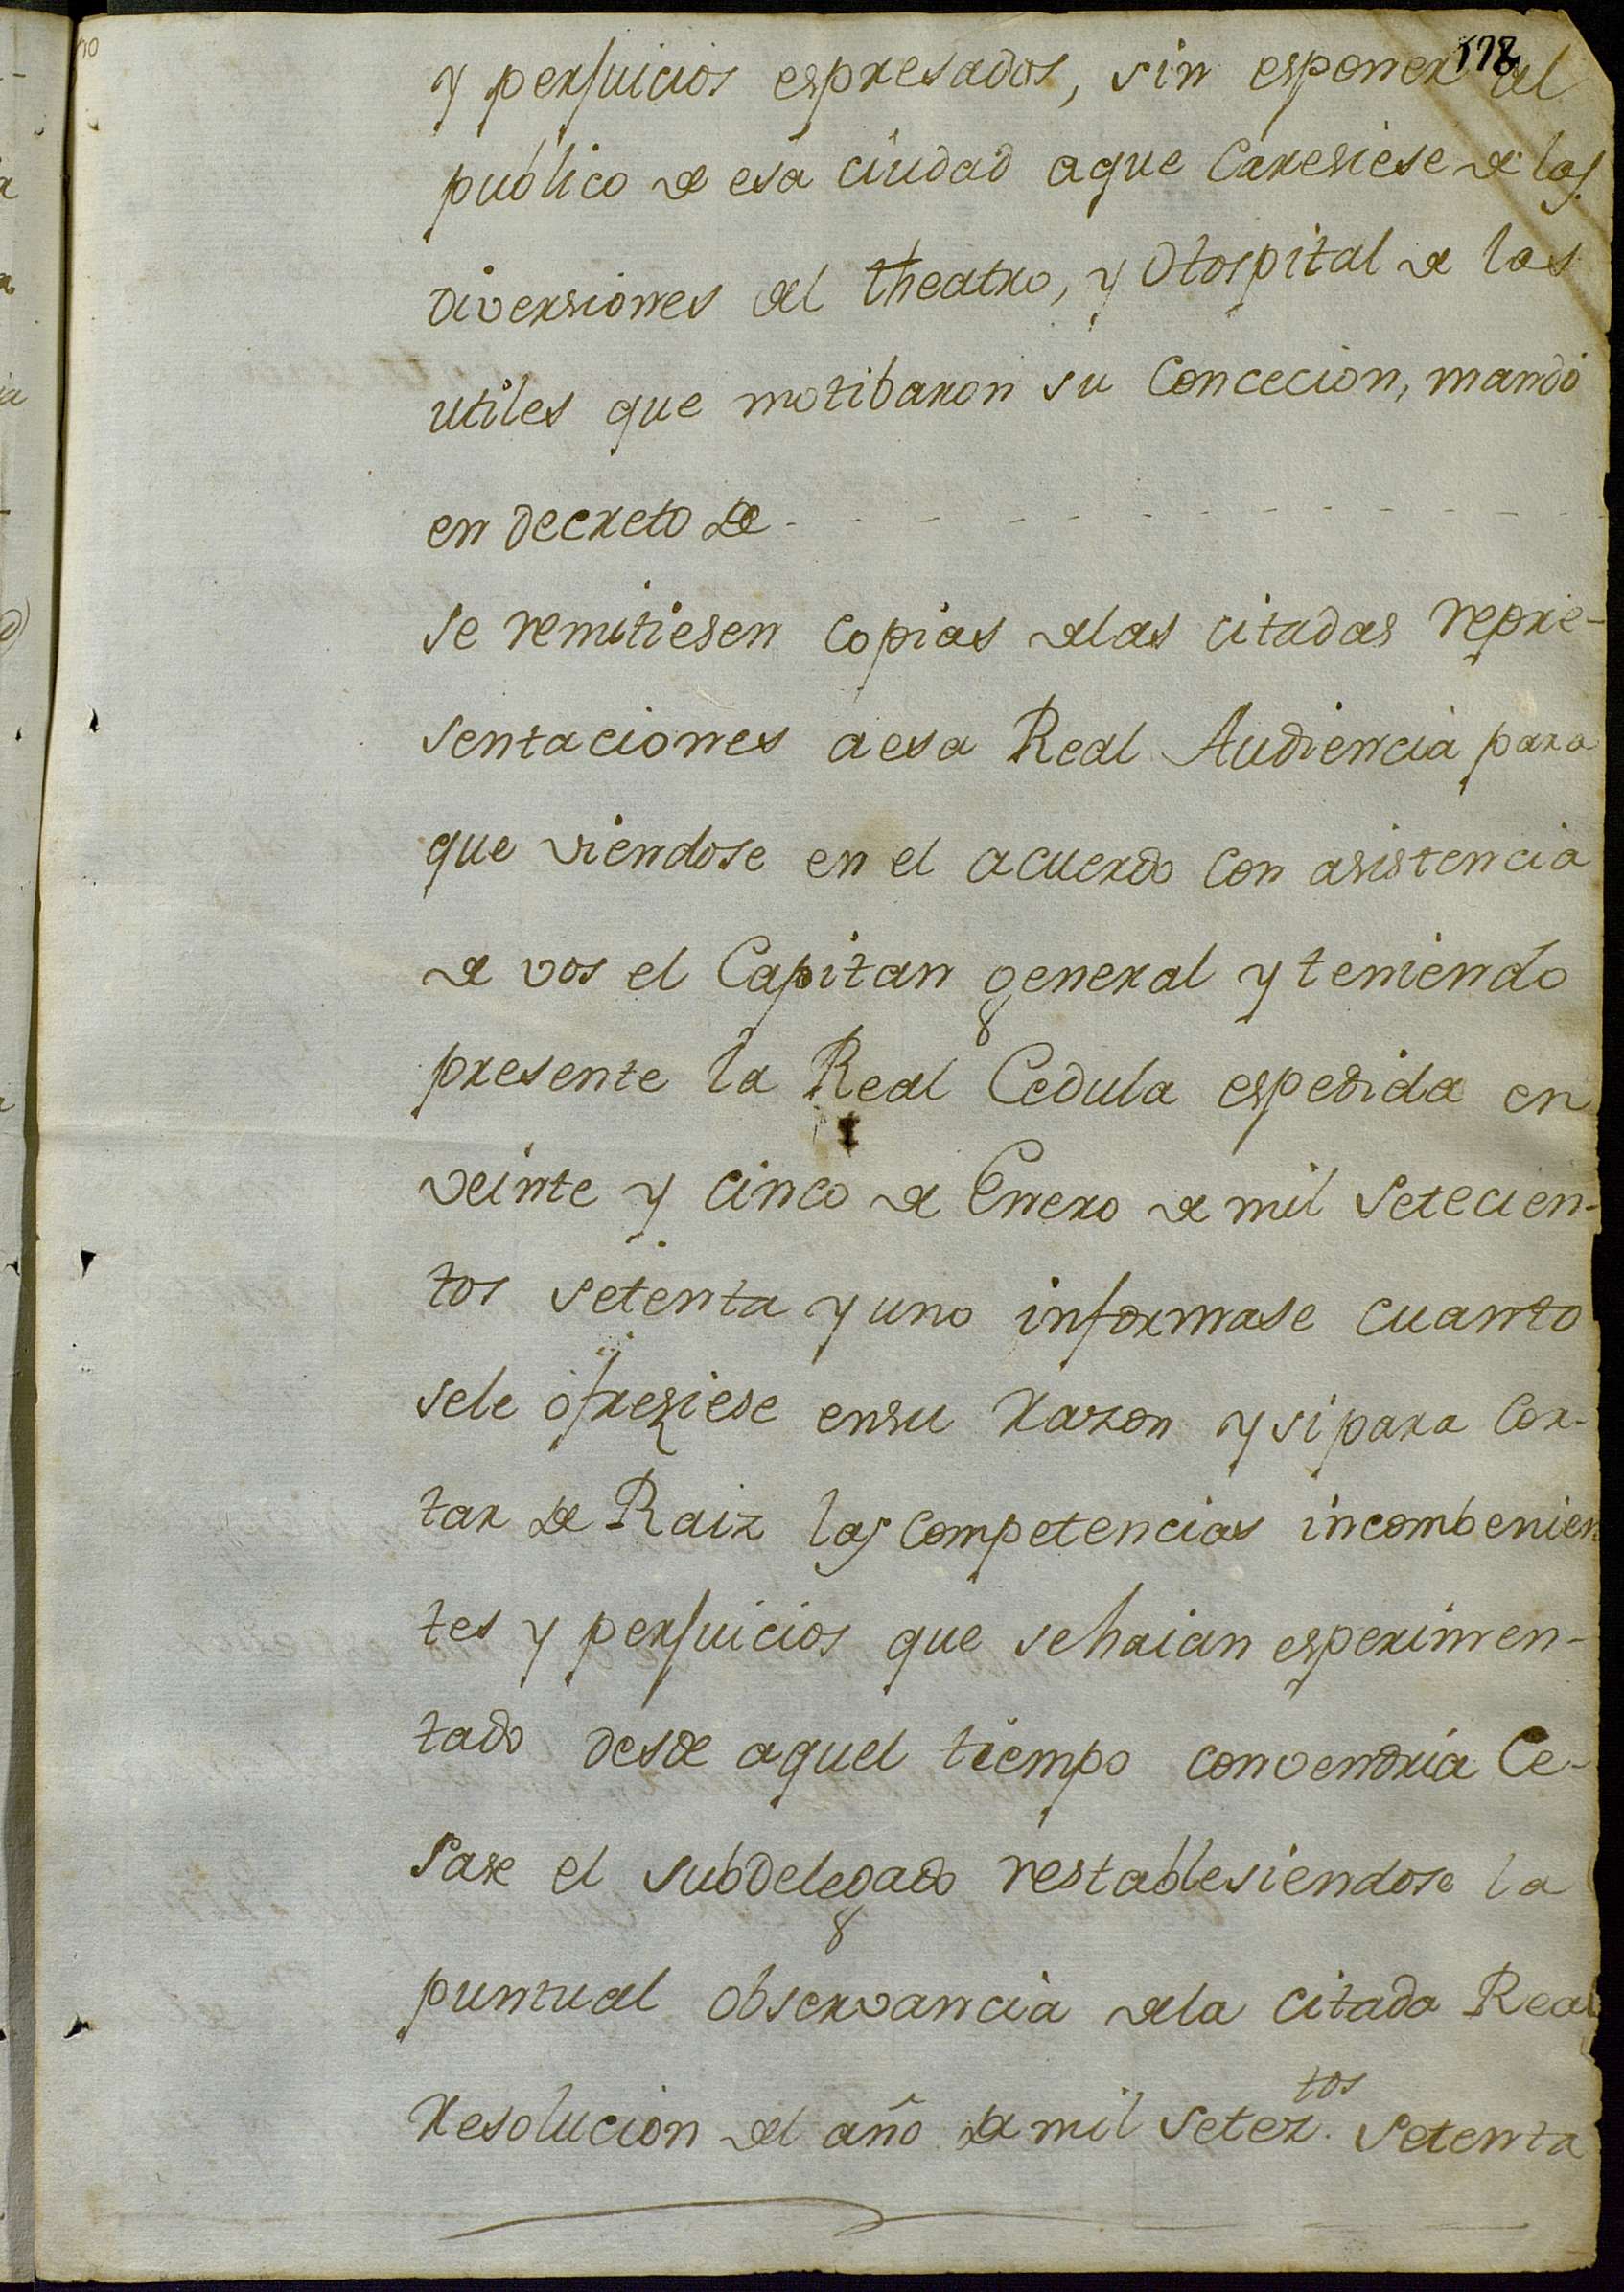 178
y perjuicios espresados, sin esponer al
publico de esa ciudad aque Caresiese de las
diversiones del theatro, y Hospital de las
utiles que motibaron su Concecion, mandó
en decreto de - - - - - - - - - - - - - -
se remitiesen copias delas citadas repre-
sentaciones aesa Real Audiencia para
que viendose en el acuerdo con asistencia
de vos el Capitan general y teniendo
presente la Real Cedula espedida en
veinte y cinco de Enero de mil setecien-
tos setenta y uno informase cuanto
sele ofreziese ensu razon y si para Cor-
tar de Raiz las Competencias incombenien
tes y perjuicios que sehaian esperimen-
tado desde aquel tiempo convendria Ce-
sase el subdelegado restablesiendose la
puntual observancia dela citada Real
resolucion del año de mil setez.tos setenta